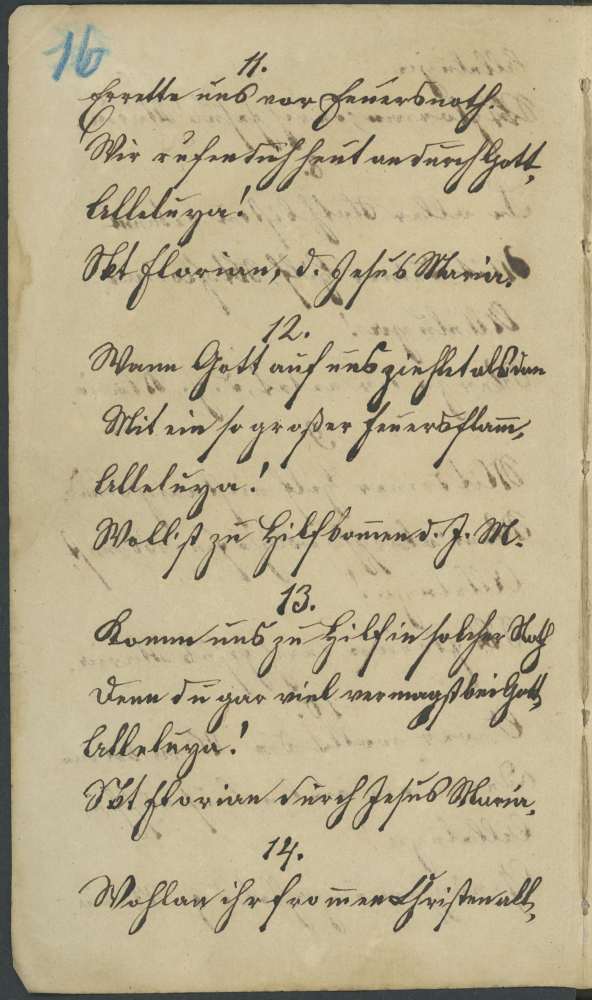 16
11.
Errette uns vor Feuersnoth.
Wir rufen dich heut an durch Gott,
Alleluya!
Skt Florian, d. Jesus Maria.
12.
Wann Gott auf uns ziehlet alsdan
Mit ein so großer Feuersflam̅,
Alleluya!
Woll'st zu Hilf kom̅en d. J. M.
13.
Komm uns zu Hilf in solcher Noth
Denn du gar viel vermagst bei Gott,
Alleluya!
Skt Florian durch Jesus Maria,
14.
Wohlan ihr from̅en Christen all,